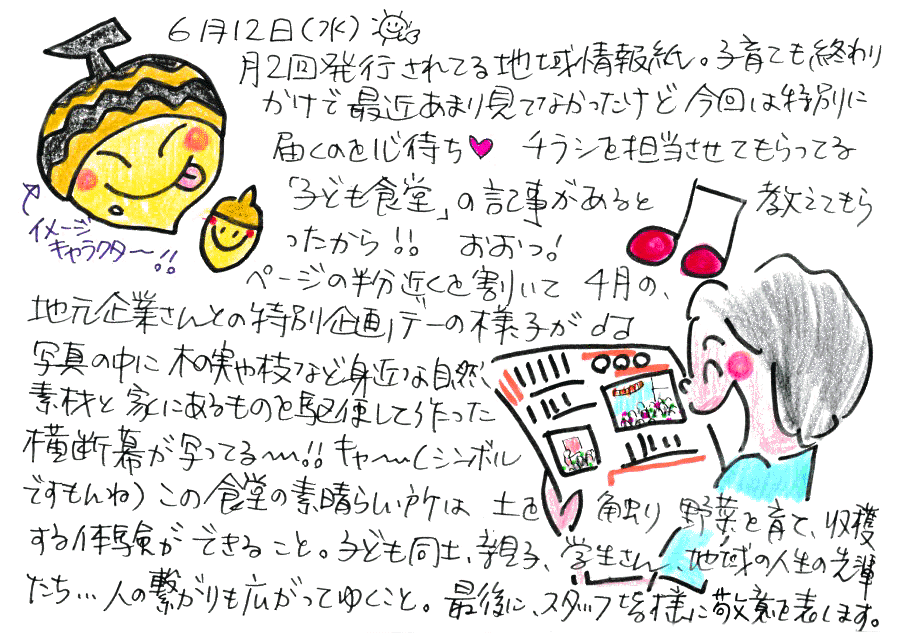 6月12日(水)
月2回発行されてる地域情報紙。子育ても終わり
かけで最近あまり見てなかったけど今回は特別に
届くのを心待ち♥ チラシを担当させてもらってる
「子ども食堂」の記事があると 教えてもら
ったから!! おおっ!
イメージ
キャラクター〜!!
ページの半分近くを割いて 4月の、
地元企業さんとの特別企画デーの様子が♪♫
写真の中に木の実や枝など身近な自然、
素材と家にあるものを駆使して作った
横断幕が写ってる〜!! キャ〜(シンボル
ですもんね) この食堂の素晴らしい所は 土を 触り 野菜を育て、収穫
する体験ができること。子ども同士、親子、学生さん、地域の人生の先輩
たち… 人の繋がりも広がってゆくこと。最後に、スタッフ皆様に敬意を表します。